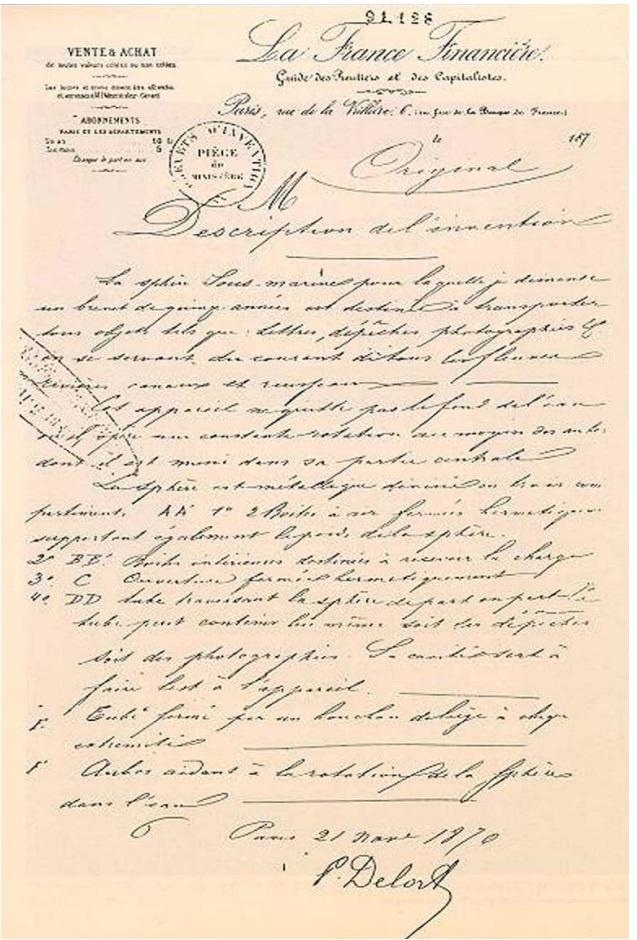 91,128
VENTE & ACHAT
de toutes valeurs cotées ou non cotées.
La France Financière.
Guide des Rentiers et des Capitalistes.
ABONNEMENTS
PARIS ET LES DÉPARTEMENTS
Un an
Six mois
Étranger le port en sus
Paris, rue de la Vrillière, 6, (en face de la Banque de France)
le 187
BREVETS D'INVENTION
PIÈCE
du
MINISTÈRE
Original
M
Description de l'invention
La sphère Sous-marine pour laquelle je demande
un brevet de quinze années est destinée à transporter
tous objets tels que: Lettres, dépêches photographies &
en se servant du courant de tous les fleuves
rivières canaux et ruisseaux
Cet appareil ne quitte pas le fond de l'eau
où il opère une constante rotation au moyen des aubes
dont il est muni dans sa partie centrale
La sphère est métallique divisée en trois com
partiments. AA' 1° 2 Boites à air fermées hermétique
supportant également le poids de la sphère.
2° BB' Boites intérieures destinées à recevoir la charge
3° C Ouverture fermée hermétiquement
4° DD tube traversant la sphère de part en part le
tube peut contenir lui même soit des dépêches
soit des photographies. sert à
faire lest à l'appareil.
fermé par un bouchon de liège à chaque
extrémité
F Aubes aidant à la rotation de la Sphère
dans l'eau
Paris 21 1870
P. Delort